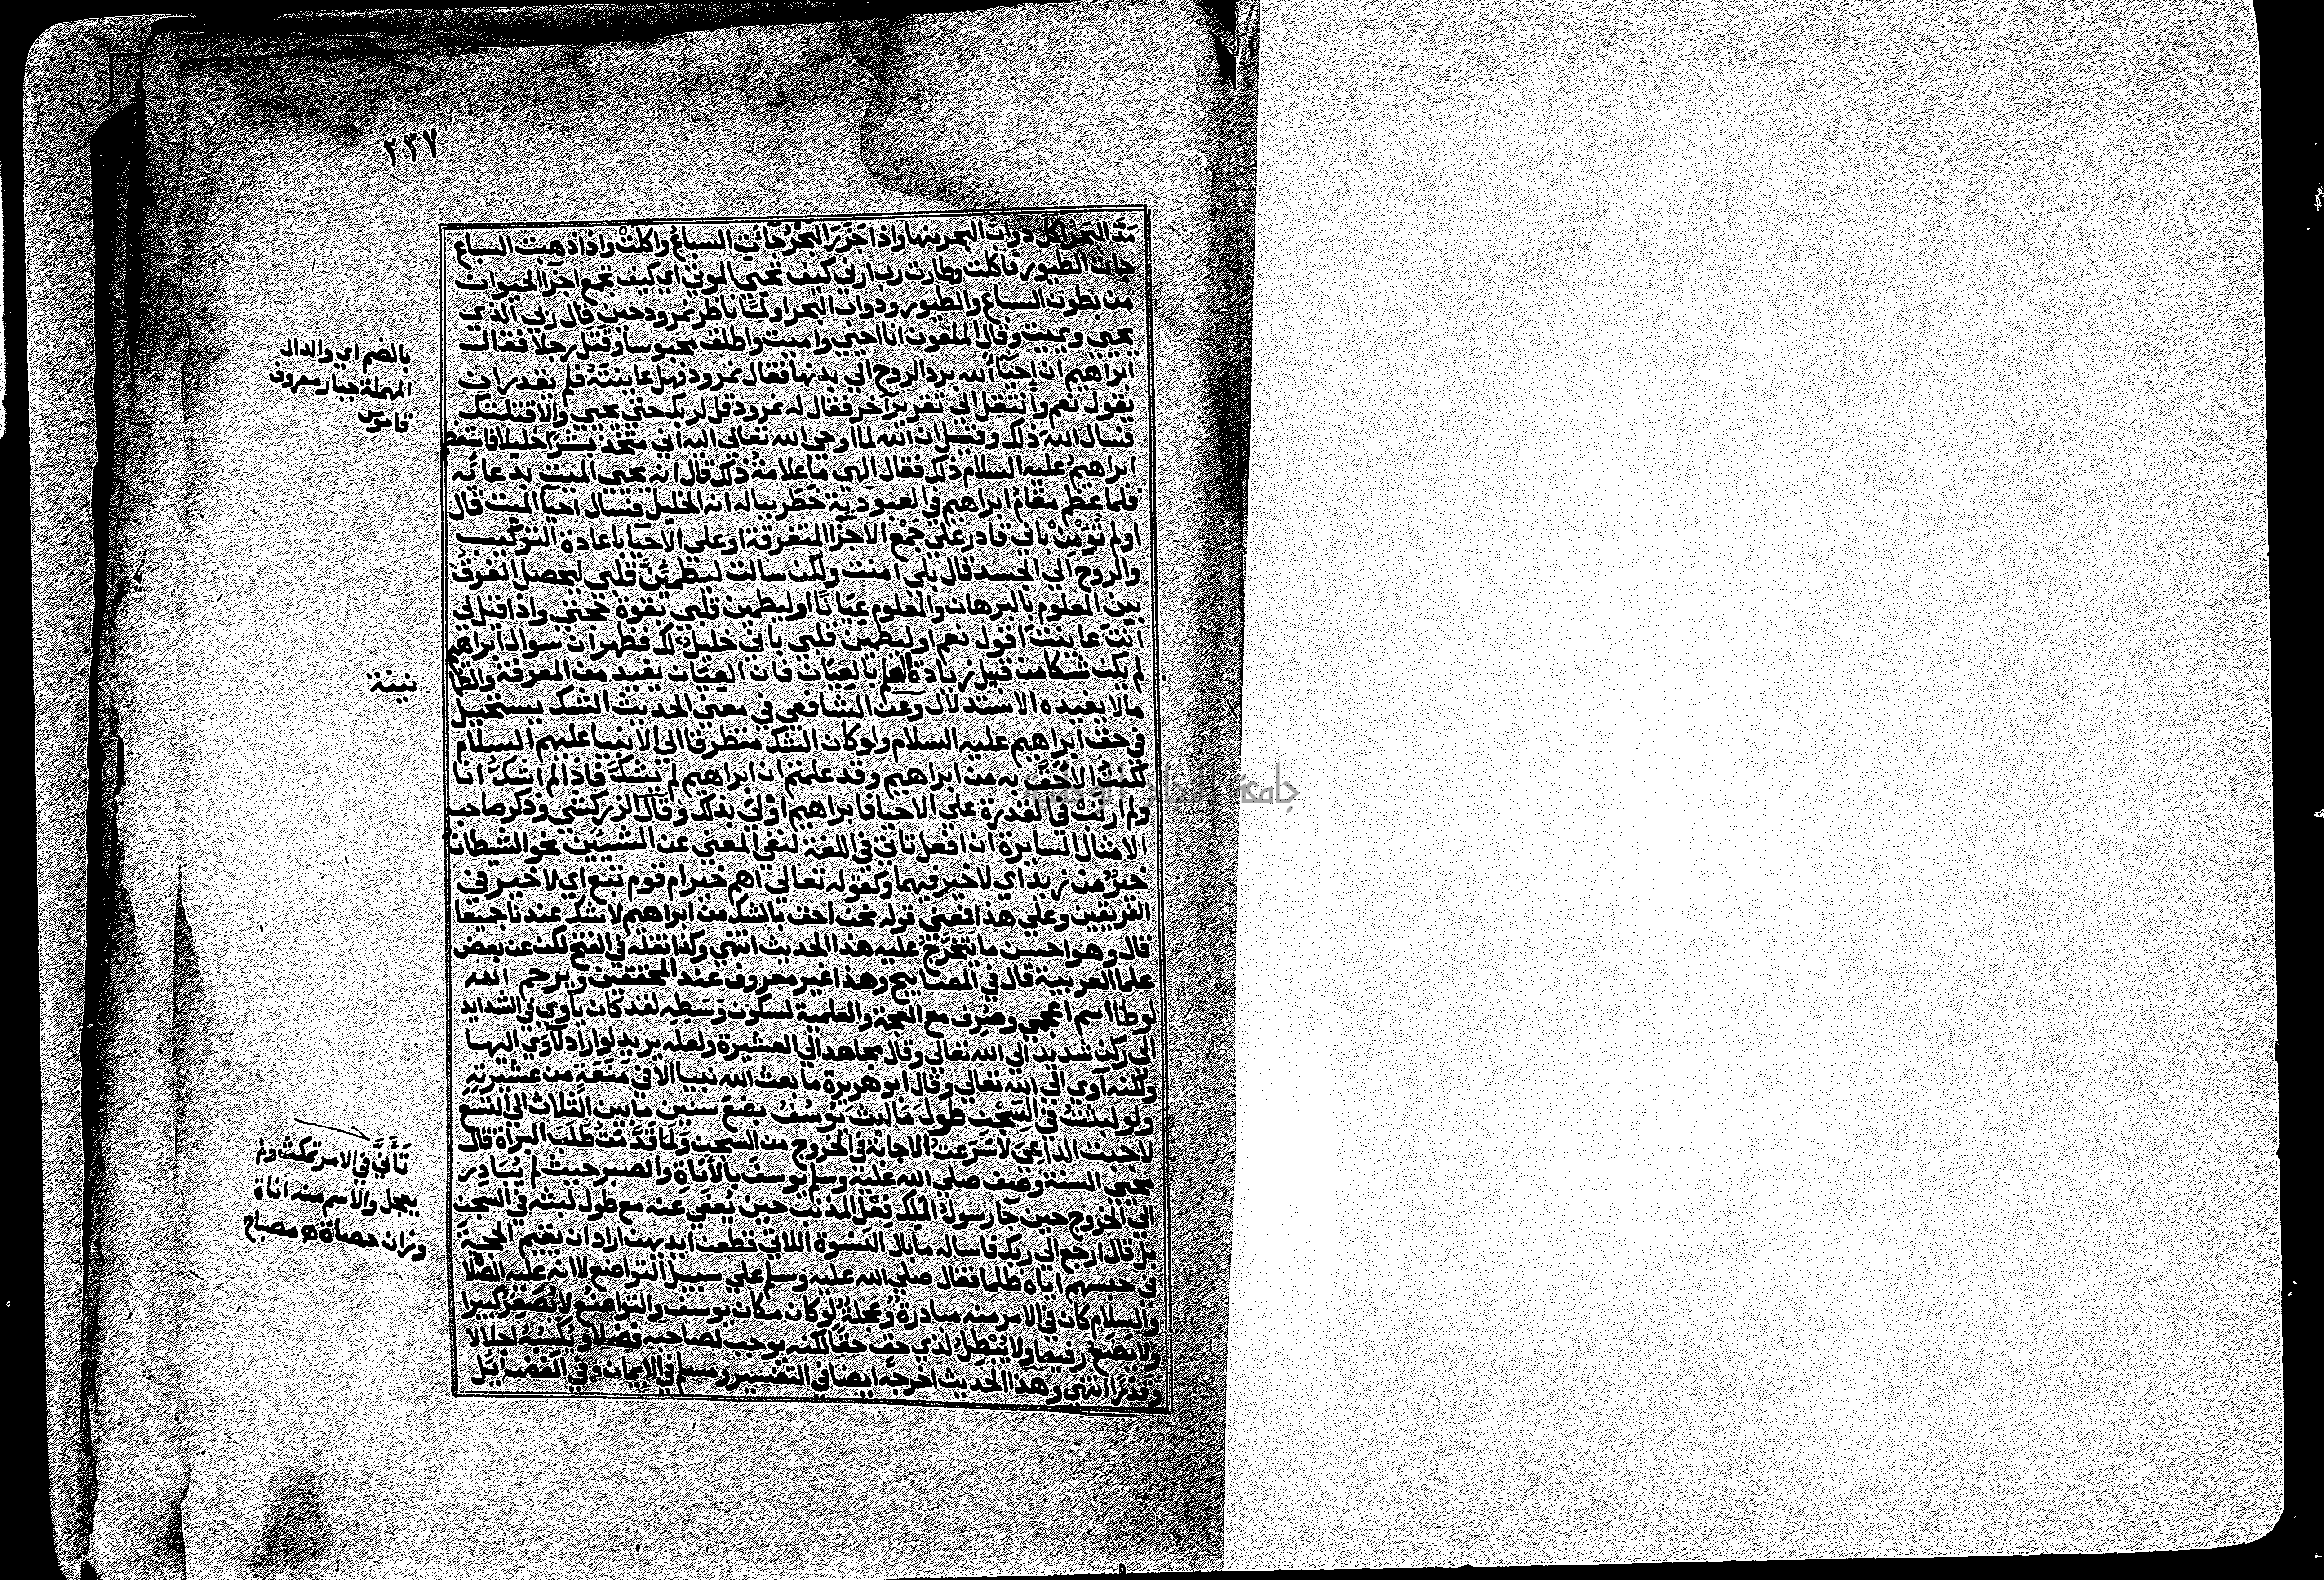 ٢٣٧
مَدَّ البَحْرُ اَكَلَ دوابُّ البحر منها واذا جَزَرَ البَحْرُ جَآئتِ السباعُ واكلتْ واذا ذهبت السباع
جات الطيور فاكلت وطارت رب ارني كيف تحيي الموتي اي كيف تجمع اجزآ الحيوان
من بطون السباع والطيور ودواب البحر او لمّا ناظر نمرود حين قال ربي الذي
يحيي ويميت وقال الملعون انا احيي واميت واطلق محبوسا وقتل رجلا فقال
ابراهيم ان اِحيآءَ الله برد الروح الي بدنها فقال نمرود فهل عاينتَهُ فلم يقدر ان
يقول نعم وانتقل الي تقرير آخر فقال له نمرود قل لربك حتي يحيي والا قتلتك
فسال اللهَ ذلك وقيل ان الله لما اوحي الله تعالي اليه اني متخذ بشرا خليلا فاستعظم
ابراهيمُ عليه السلام ذلك فقال الهي ما علامةُ ذلك قال انه يحيي الميت بدعائه
فلما عظم مقامُ ابراهيم في العبودية خَطَر بباله انه الخليل فسال احيآ الميت قال
اولم تُؤْمِنْ باني قادر علي جَمْعِ الاجزآ المتفرقة او علي الاحيآ باعادة التركيب
والروح الي الجسد قال بلي امنت ولكن سالت ليطمئنَّ قلبي ليحصل الفرقُ
بين المعلوم بالبرهان والمعلوم عيانًا او ليطمين قلبي بقوة حجتي واذا قيل لي
انت عاينتَ اقول نعم او ليطمين قلبي باني خليلٌ لك فظهر ان سوال ابراهيم
لم يكن شكا من قبيل زيادة العلم بالعِيَان فان العِيَان يفيد من المعرفة والطما
نينة
مالا يفيده الاستدلال وعن الشافعي في معني الحديث الشك يستحيل
في حق ابراهيم عليه السلام ولو كان الشك متطرقا الي الانبيا عليهم السلام
لكنتُ الاَحَقَّ به من ابراهيم وقد علمتم ان ابراهيم لم يشكَّ فاذا لم اشكَّ انا
ولم ارتبْ في القدرة علي الاحيا فابراهيم اَوْليَ بذلك وقال الزركشي وذكر صاحب
الامثال السايرة ان افعل تاتي في اللغة لنفي المعني عن الشييين نحو الشيطان
خيرٌ من زيد اي لا خير فيهما وكقوله تعالي اهم خير ام قوم تبع اي لا خير في
الفريقين وعلي هذا فمعني قوله نحن احق بالشك من ابراهيم لا شك عندنا جميعا
قال وهو احسن ما يَتَخَرَّجُ عليه هذا الحديث انتهي وكذا نقله في الفتح لكن عن بعض
علما العربية قال في المصابيح وهذا غير معروف عند المحققين ويرحم الله
لوطا اسم اعجمي وصُرِف مع العجمة والعلمية لسكون وَسَطِهِ لقد كان ياوي في الشدايد
الي ركن شديد الي الله تعالي وقال مجاهد الي العشيرة ولعله يريد لو اراد لآوَي اليها
ولكنه آوي الي الله تعالي وقال ابو هريرة ما بعث الله نبيا الا في مَنَعَةٍ من عشيرتِهِ
ولو لبثتُ في السِّجْنِ طولَ مَا لبثَ يُوسُفُ بضعَ سنين ما بين الثلاث الي التسع
لاجبت الداعيَ لاسْرَعتُ الاجابة في الخروج من السجن وَلَمَا قَدَّمْتُ طَلَبَ البرأة قال
محيي السنة وصف صلي الله عليه وسلم يوسفَ بالاَنَاةِ والصبر حيث لم يُبَادِر
الي الخروج حين جآ رسولُ المَلِك فِعْلَ المذنب حين يُعفَي عنه مع طول لبثه في السجن
بل قال ارجع الي ربك فاساله ما بال النسوة اللاتي قطعن ايديهن اراد ان يقيم الحجةَ
في حبسهم اياه ظلما فقال صلي الله عليه وسلم علي سبيل التواضع لا انه عليه الصلا
والسلام كان في الامر منه مبادرةٌ وعجلةٌ لو كان مكان يوسف والتواضع لا يُصَغِّر كبيرا
ولا يَضَعُ رفيعا ولا يُبْطِلُ لذي حق حقا لكنه يوجب لصاحبه فضلا ويُكْسِبُهُ اجلالا
وقَدْرًا انتهي وهذا الحديث اخرجه ايضا في التفسير ومسلم في الايمان وفي الفضايل
بالضم اي والدال
المهملة جبار معروف
قاموس
تَأَنَّيَ في الامر تمكث ولم
يعجل والاسم منه اناة
وزان حصاة ه مصباح